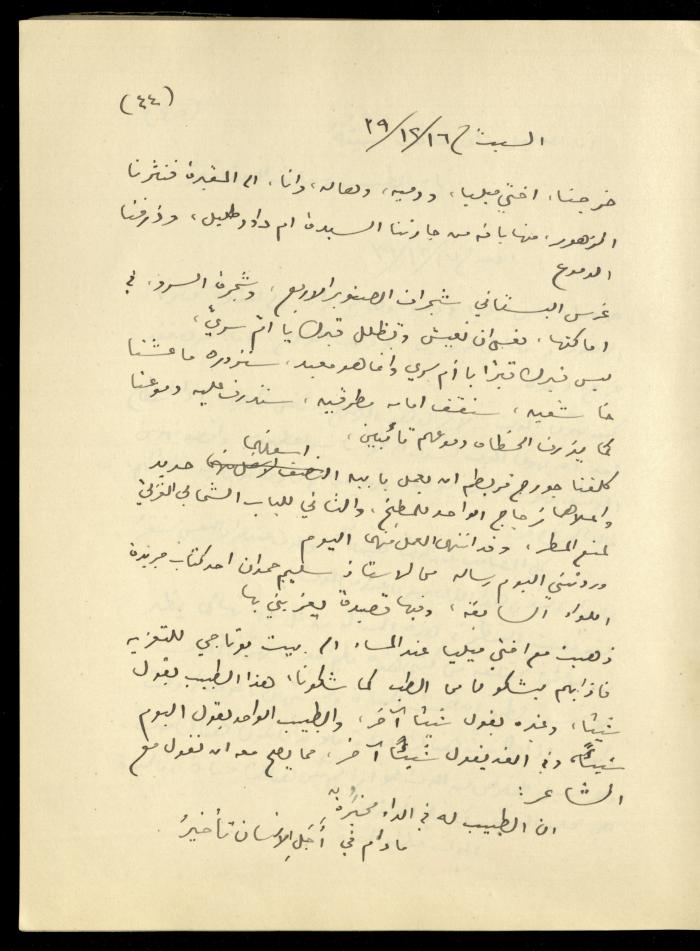 (٤٤)
السبت في ٣٩/١٢/١٦
خرجنا، اختي ميليا، ودميه، وهاله، وانا، الى المقبرة فنثرنا
الزهور، منها باقه من جارتنا السيدة ام داود طليل، وذرفنا
الدموع
غرس البستاني شجرات الصنوبر الاربع، وشجرة السرو، في
اماكنها، فعسى ان تعيش وتظلل قبرك يا امّ سريّ،
ليس قبرك قبرًا يا أم سري وانما هو معبد، سنزوره ما عشنا
خاشعين، سنقف امامه مطرقين، سنذرف عليه دموعنا
كما يذرف الخطاه دموعهم تائبين،
كلفنا جورج قربطم ان يعمل بابين اسفلهما حديد
واعلاهما زجاج الواحد للمطبخ، والثاني للباب الشمالي الغربي
لمنع المطر، وقد انتهى العمل منهما اليوم
وردتني اليوم رساله من الاستاذ سليم حمدان احد كتاب جريدة
اللواء السابقة، وفيها قصيدة يعزيني بها
ذهبت مع اختي ميليا عند المساء الى بيت بوتاجي للتعزيه
فاذا بهم يشكون من الطب كما شكونا، هذا الطبيب يقول
شيئا، وغيره يقول شيئا آخر، والطبيب الواحد يقول اليوم
شيئًا، وفي الغد يقول شيئًا آخر، مما يصح معه ان نقول مع
الشاعر:
ان الطبيب له في الداء مخبرة به
ما دام في أجَلِ الإنسان تأخيرُ